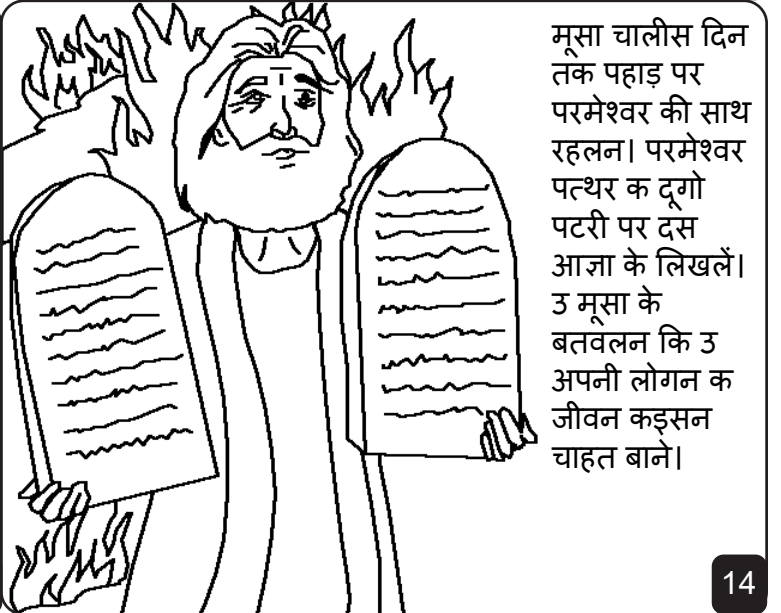 मूसा चालीस दिन
तक पहाड़ पर
परमेश्वर की साथ
रहलन। परमेश्वर
पत्थर क दूगो
पटरी पर दस
आज्ञा के लिखलें।
उ मूसा के
बतवलन कि उ
अपनी लोगन क
जीवन कइसन
चाहत बाने।
14